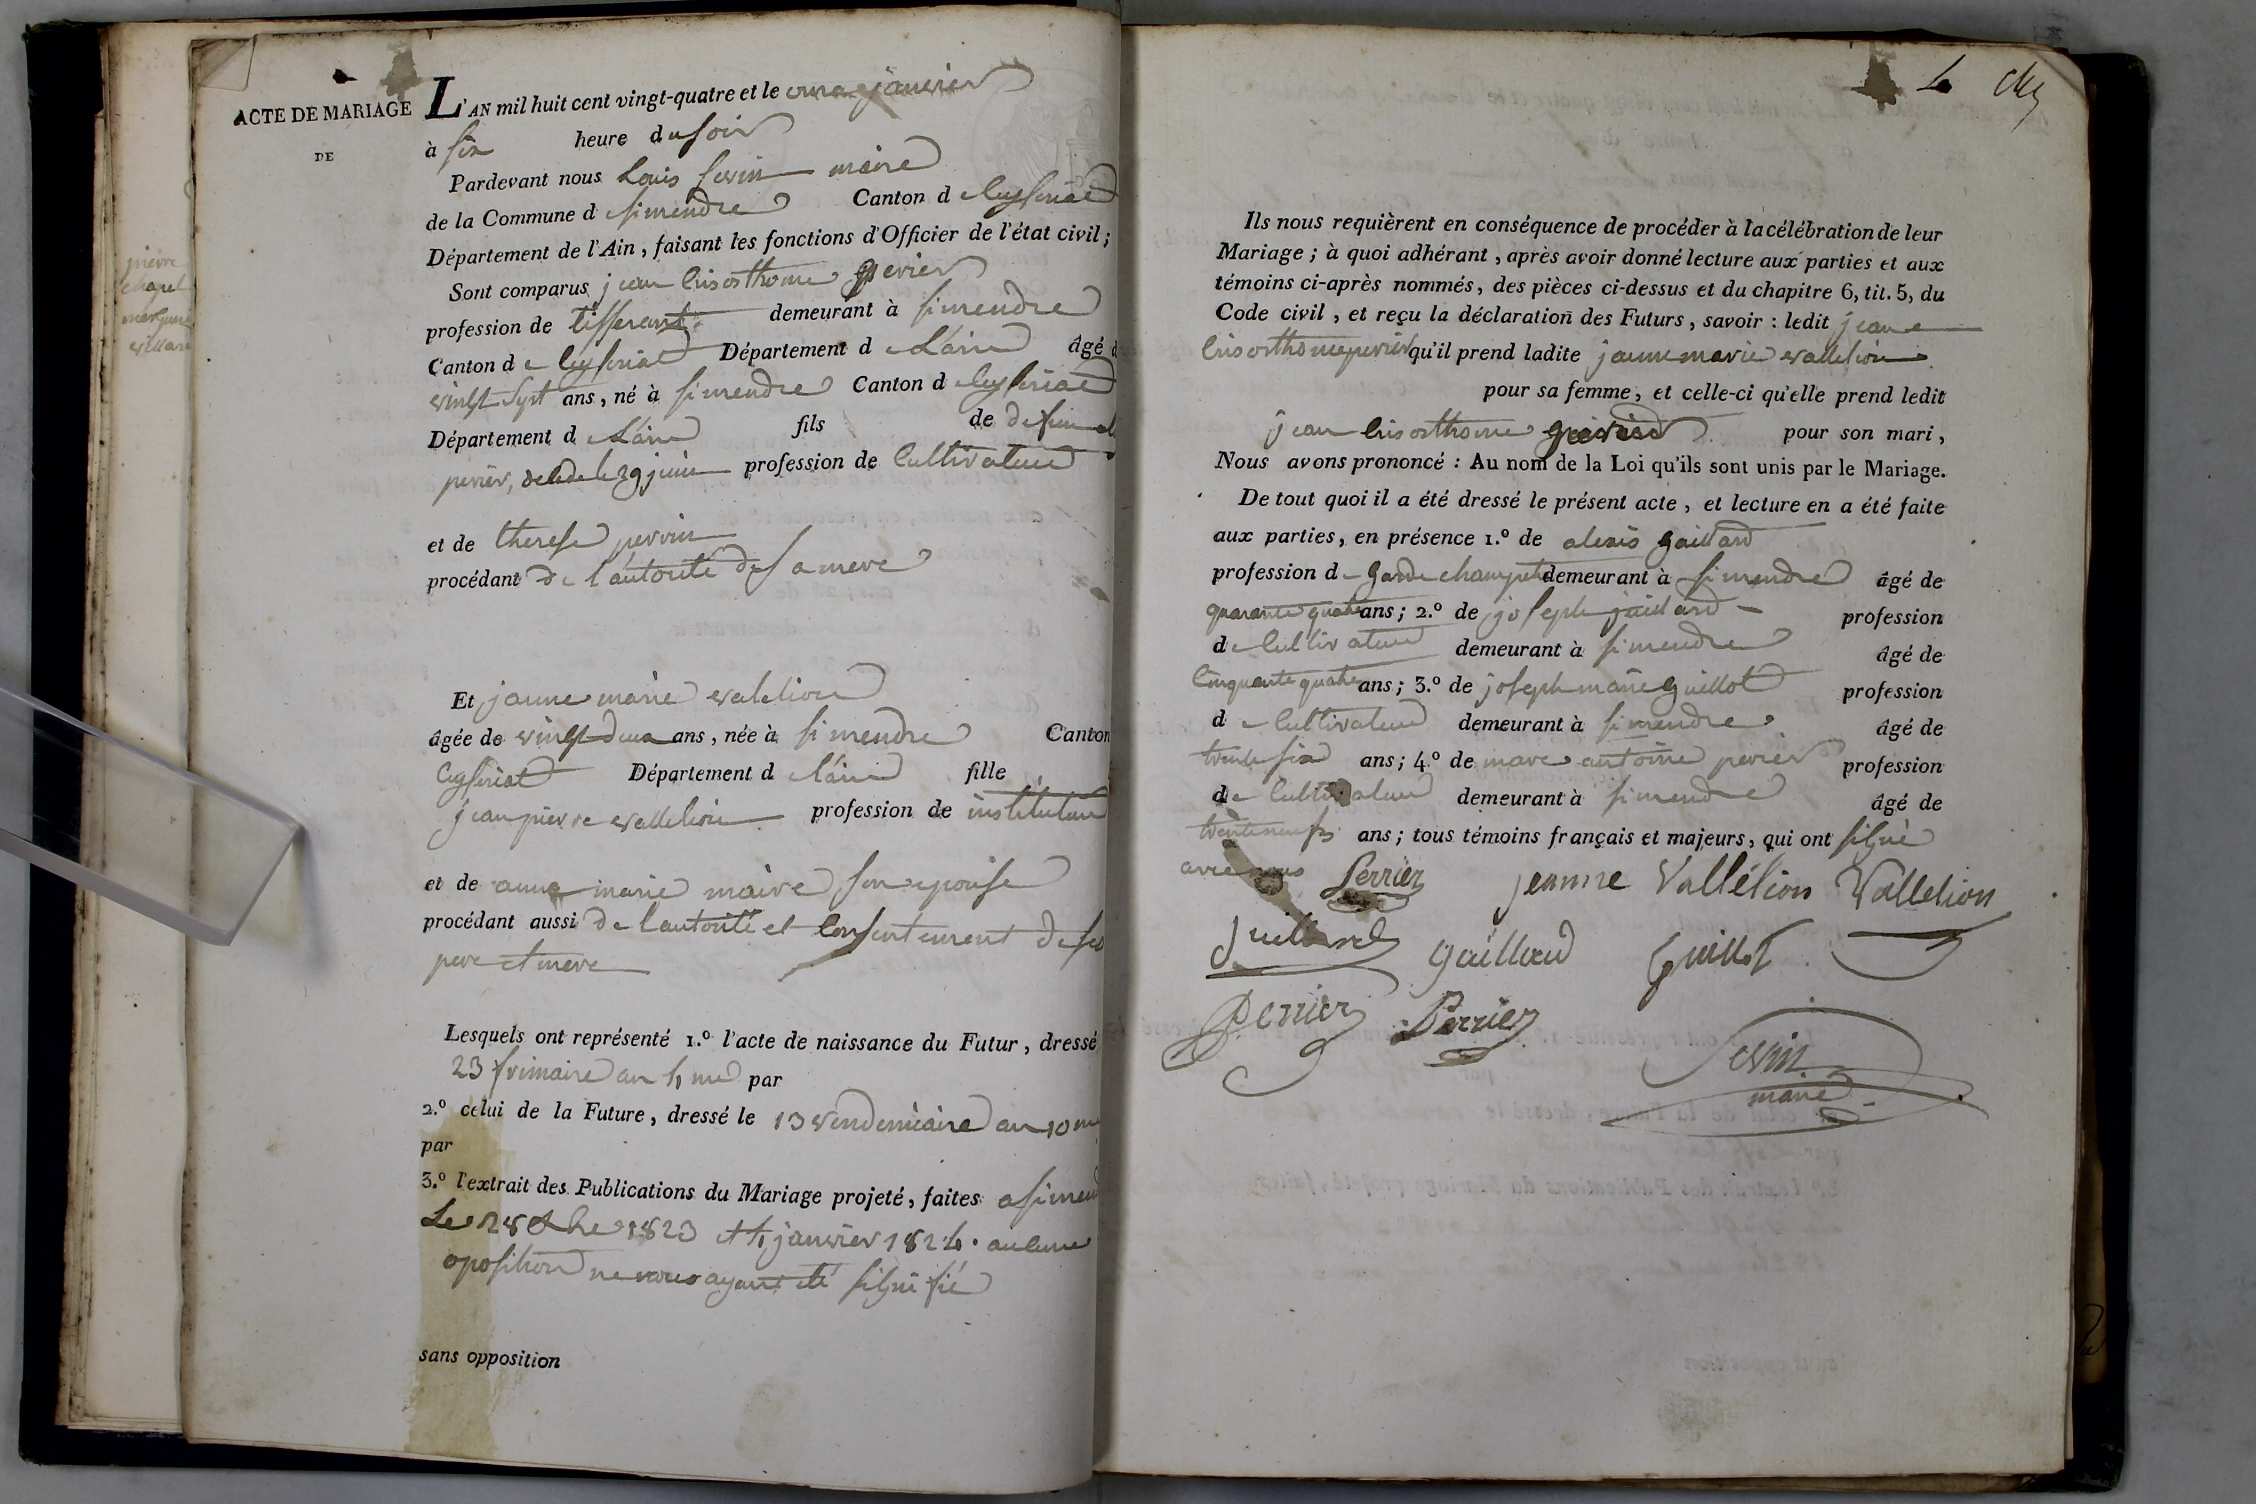 ACTE DE MARIAGE
DE
L'AN mil huit cent vingt-quatre et le onze janvier
à six heure du soir
Pardevant nous Louis Sevin maire
de la Commune d simendre Canton d Ceyseriat
Département de l'Ain, faisant les fonctions d'Officier de l'état civil;
Sont comparus jean Crisosthome perier
profession de tisserant demeurant à simendre
Canton de Ceyseriat Département d L'ain âgé d
vingt sept ans, né à simendre Canton d Ceyseriat
Département d L'ain fils de defunt
perier, le 29 juin profession de Cultivateur
et de therese perrin
procédant de l'autorité de sa mere
Et janne marie vallelion
âgée de vingt deux ans, née à simendre Canton
Ceyseriat Département d L'ain fille
jean pierre vallelion profession de instituteur
et de anne marie maire son epouse
procédant aussi de l'autorité et Consentement de ses
pere et mere
Lesquels ont représenté 1.º l'acte de naissance du Futur, dressé
23 frimaire an 4 me par
2.º celui de la Future, dressé le 13 vendemiaire an 10 me
par
3.º l'extrait des Publications du Mariage projeté, faites a simend
Le 28 1823 et 4 janvier 1824. aucune
oposition ne nous ayant été signifié
sans opposition
pierre
chapel
4
Ils nous requièrent en conséquence de procéder à la célébration de leur
Mariage; à quoi adhérant, après avoir donné lecture aux parties et aux
témoins ci-après nommés, des pièces ci-dessus et du chapitre 6, tit. 5, du
Code civil, et reçu la déclaration des Futurs, savoir: ledit jean
Crisosthome perier qu'il prend ladite janne marie vallelion
pour sa femme, et celle-ci qu'elle prend ledit
jean Crisosthome perier pour son mari,
Nous avons prononcé: Au nom de la Loi qu'ils sont unis par le Mariage.
De tout quoi il a été dressé le présent acte, et lecture en a été faite
aux parties, en présence 1.º de alexis gaillard
profession de garde champetre demeurant à simendre âgé de
quarante quatre ans; 2.º de joseph juillard profession
de Cultivateur demeurant à simendre âgé de
Cinquante quatre ans; 3.º de joseph marie guillot profession
de Cultivateur demeurant à simendre âgé de
trente six ans; 4.º de marc antoine perier profession
de Cultivateur demeurant à simendre âgé de
trente neuf ans; tous témoins français et majeurs, qui ont signé
avec nous Perrier jeanne Vallélion Vallelion
juillard gaillard guillot
Perrier Perrier
Sevin
maire